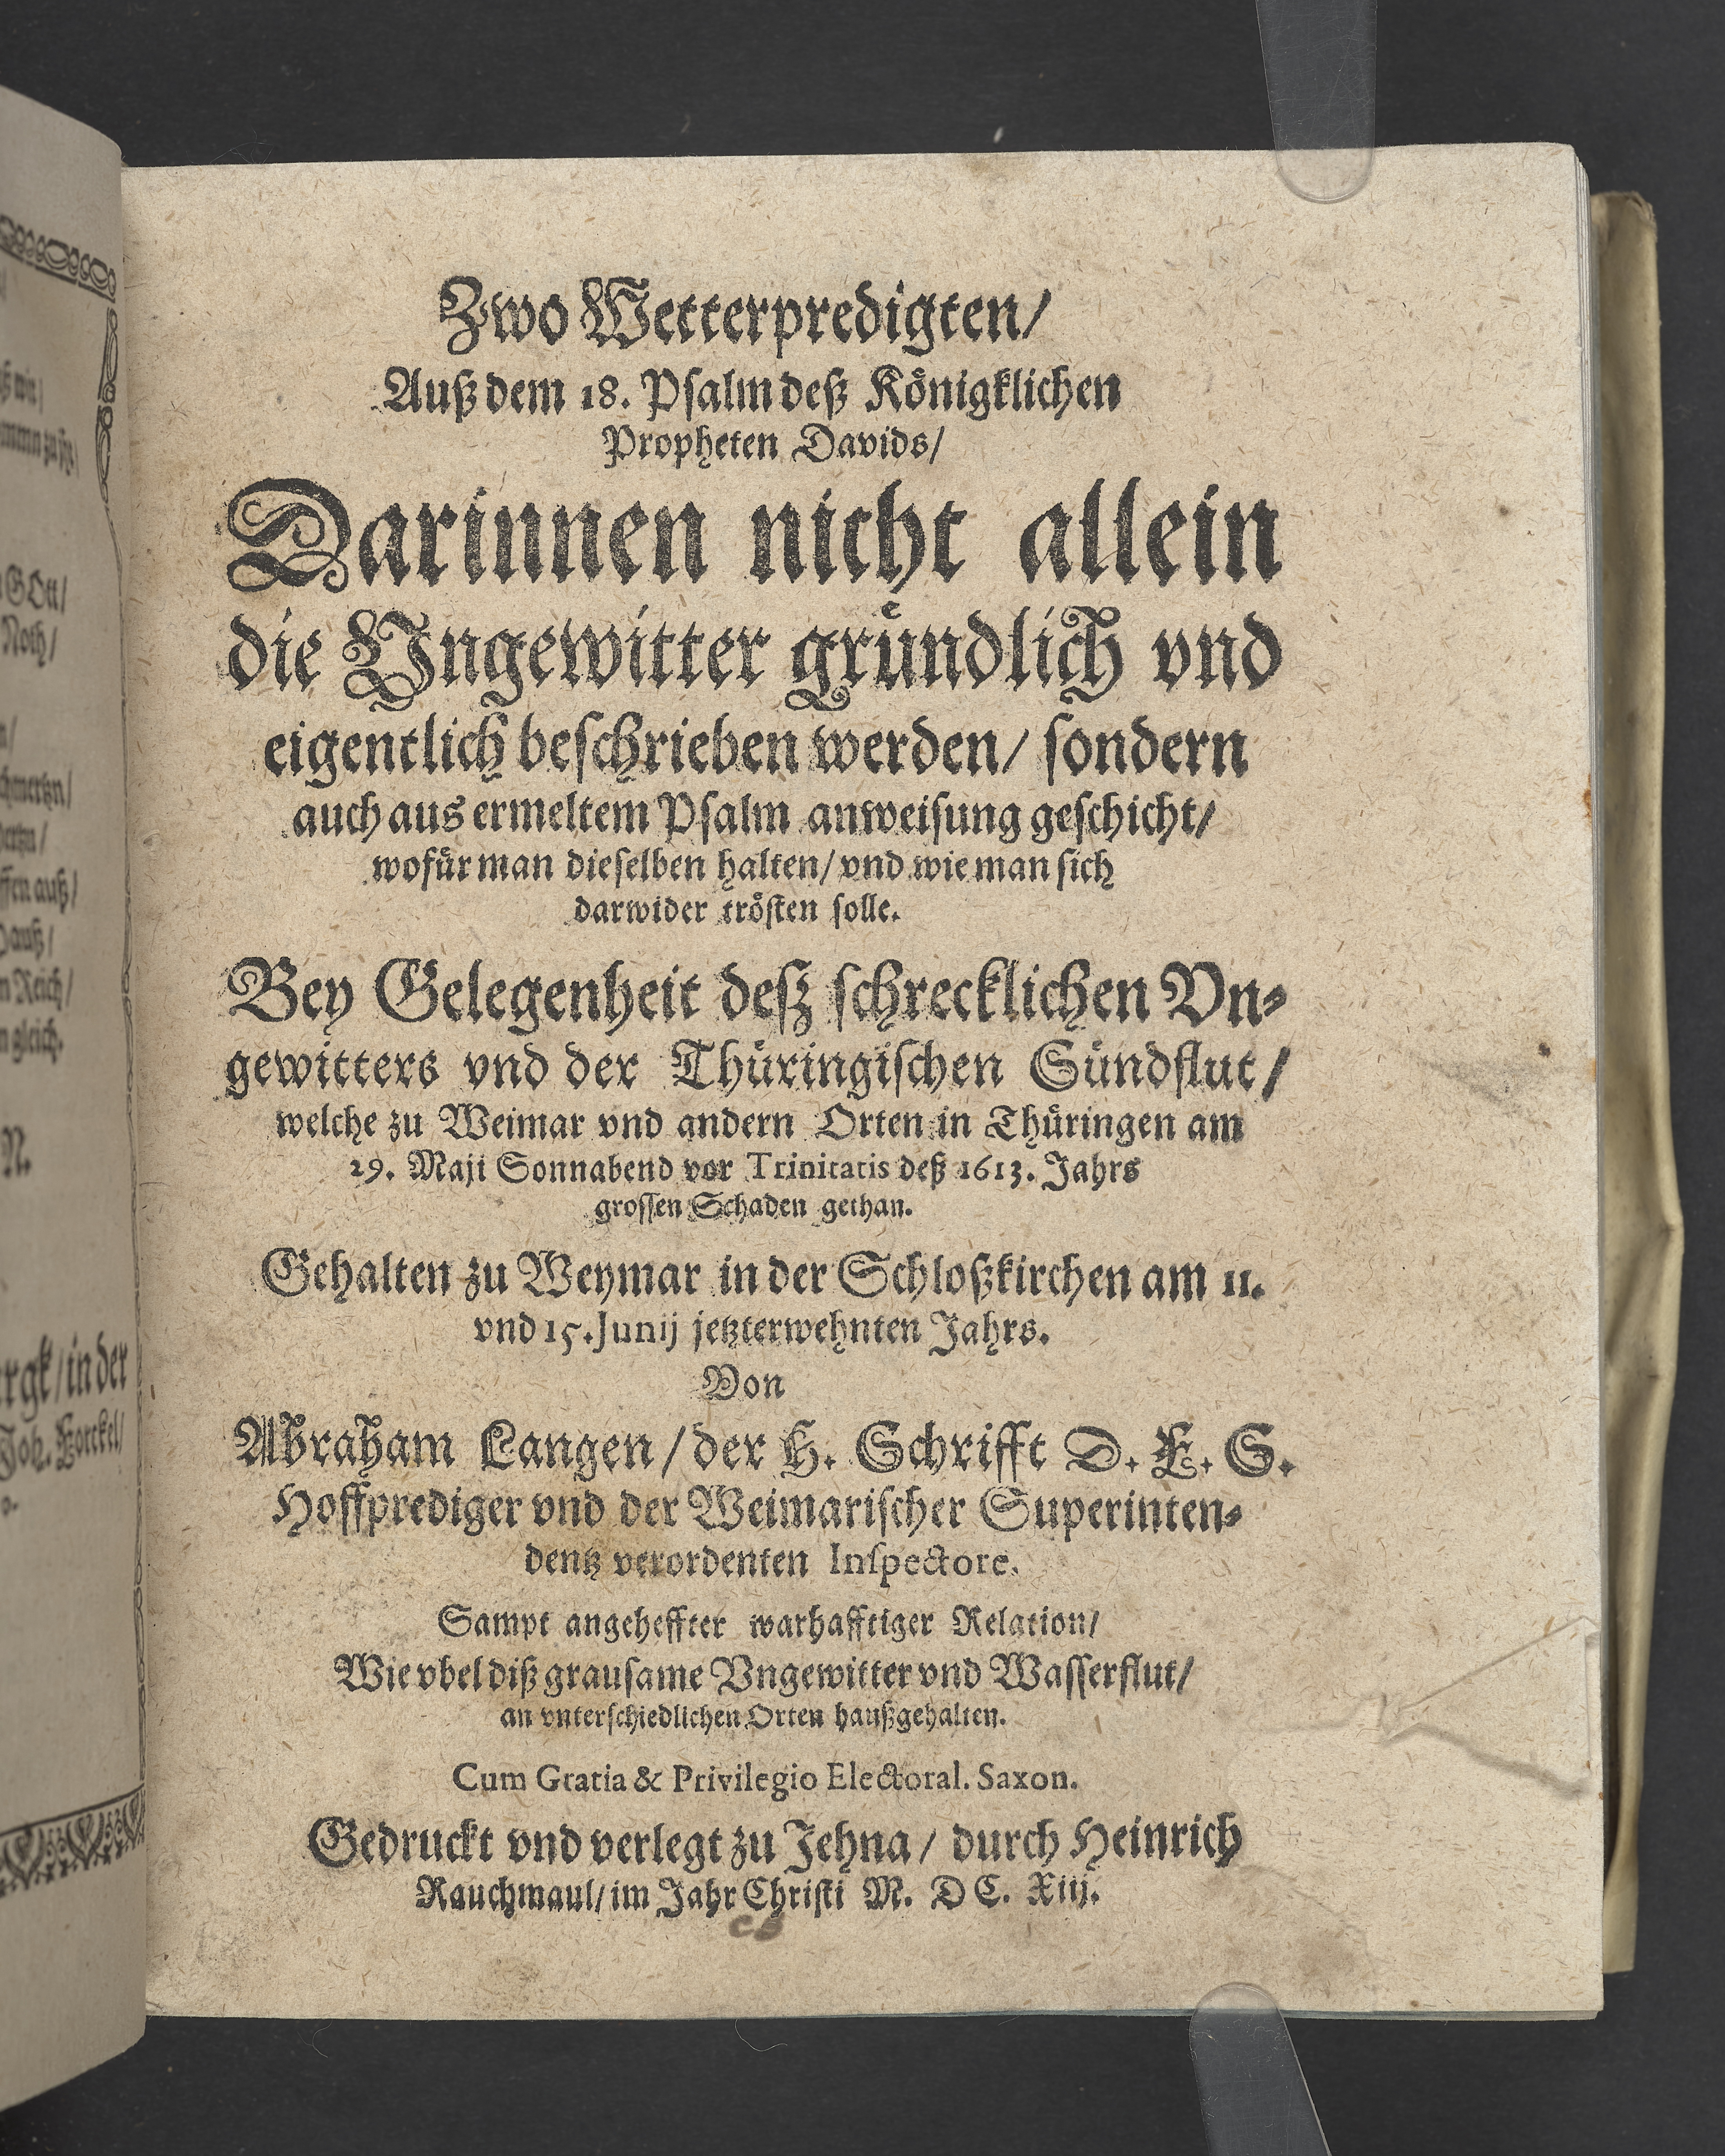 Zwo Wetterpredigten/
Auß dem 18. Psalm deß Königklichen
Propheten Davids/
Darinnen nicht allein
die Vngewitter gruͤndlich vnd
eigentlich beschrieben werden/ sondern
auch aus ermeltem Psalm anweisung geschicht/
wofuͤr man dieselben halten/ vnd wie man sich
darwider troͤsten solle.
Bey Gelegenheit deß schrecklichen Vn⸗
gewitters vnd der Thuͤringischen Suͤndflut/
welche zu Weimar vnd andern Orten in Thuͤringen am
29. Maji Sonnabend vor Trinitatis deß 1613. Jahrs
grossen Schaden gethan.
Gehalten zu Weymar in der Schloßkirchen am 11.
vnd 15. Junij jetzterwehnten Jahrs.
Von
Abraham Langen/ der H. Schrifft D. F. S.
Hoffprediger vnd der Weimarischer Superinten⸗
dentz verordenten Inspectore.
Sampt angeheffter warhafftiger Relation/
Wie vbel diß grausame Vngewitter vnd Wasserflut/
an vnterschiedlichen Orten haußgehalten.
Cum Gratia & Privilegio Electoral. Saxon.
Gedruckt vnd verlegt zu Jehna/ durch Heinrich
Rauchmaul/ im Jahr Christi M. DC. Xiij.
GOtt/
Noth/
chmertzn/
ffen auß/
n Reich/
n gleich.
N.
rgk/ in der
Joh.